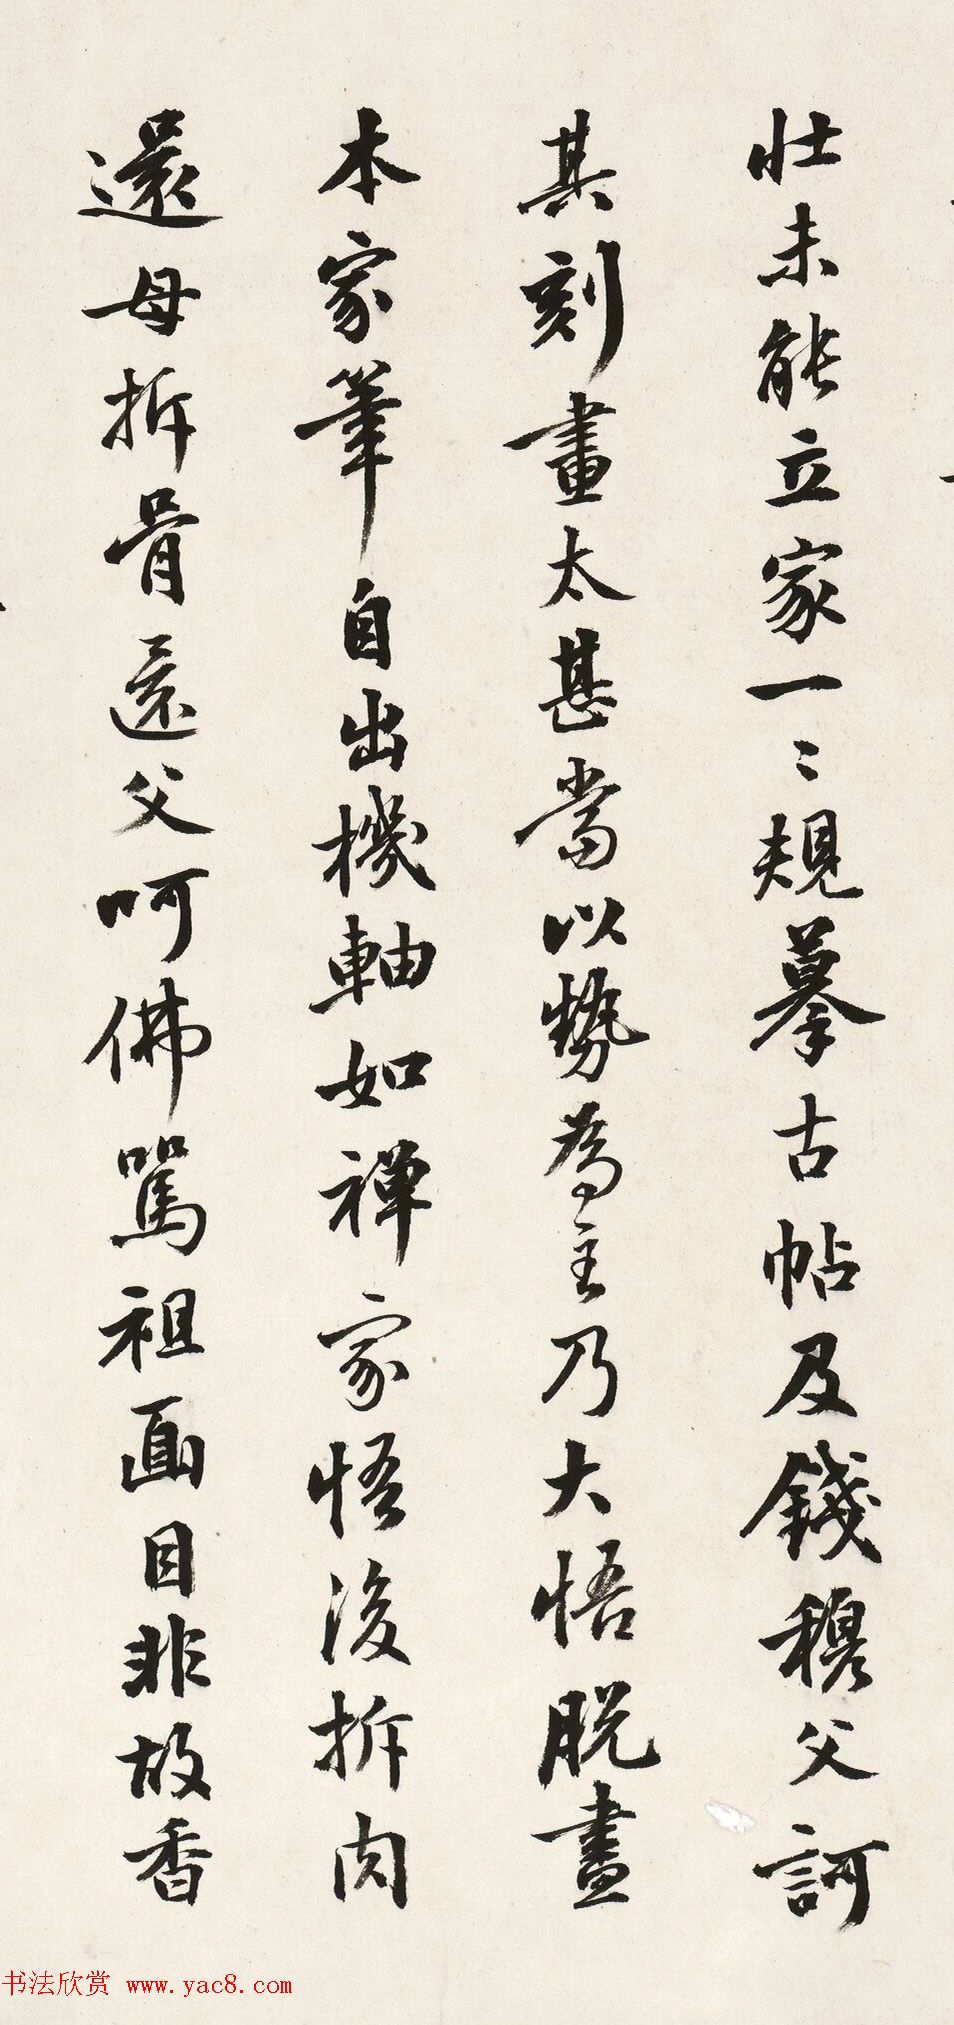 壮未能立家一々規摹古帖及錢穆父訶
其刻畫太甚當以勢為主乃大悟脫盡
本家筆自出機軸如禪家悟後拆肉
還母拆骨還父呵佛罵祖面目非故香
书法欣赏 www.yac8.com